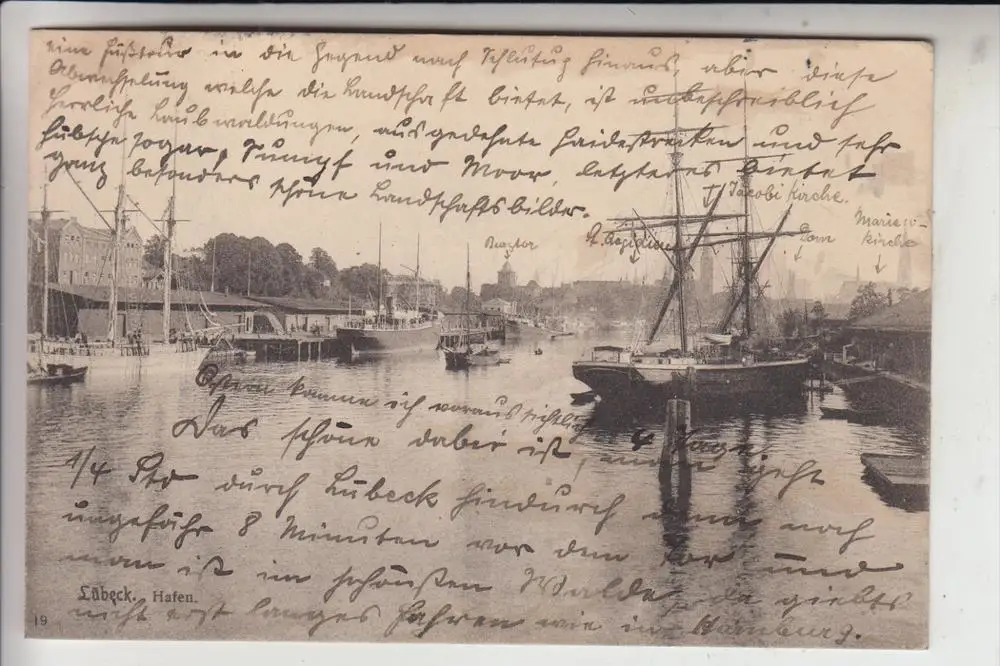 eine Fußtour in die Gegend nach Schlutup hinaus, aber diese
Abwechselung welche die Landschaft bietet, ist unbeschreiblich
herrliche Laubwaldungen, ausgedehnte Haidestrecken und sehr
hübsche sogar, Sumpf und Moor, letzteres bietet
ganz besonders schöne Landschaftsbilder.
Jacobi Kirche.
Marien-
kirche
Dom
St. Aegidien
Ostern komme ich voraussichtlich 4 Tage.
Das schöne dabei ist, man geht
1/4 Std durch Lübeck hindurch dann noch
ungefähr 8 Minuten vor dem Tor und
man ist im schönsten Walde, da giebts
nicht erst langes fahren wie in Hamburg.
Lübeck. Hafen.
19